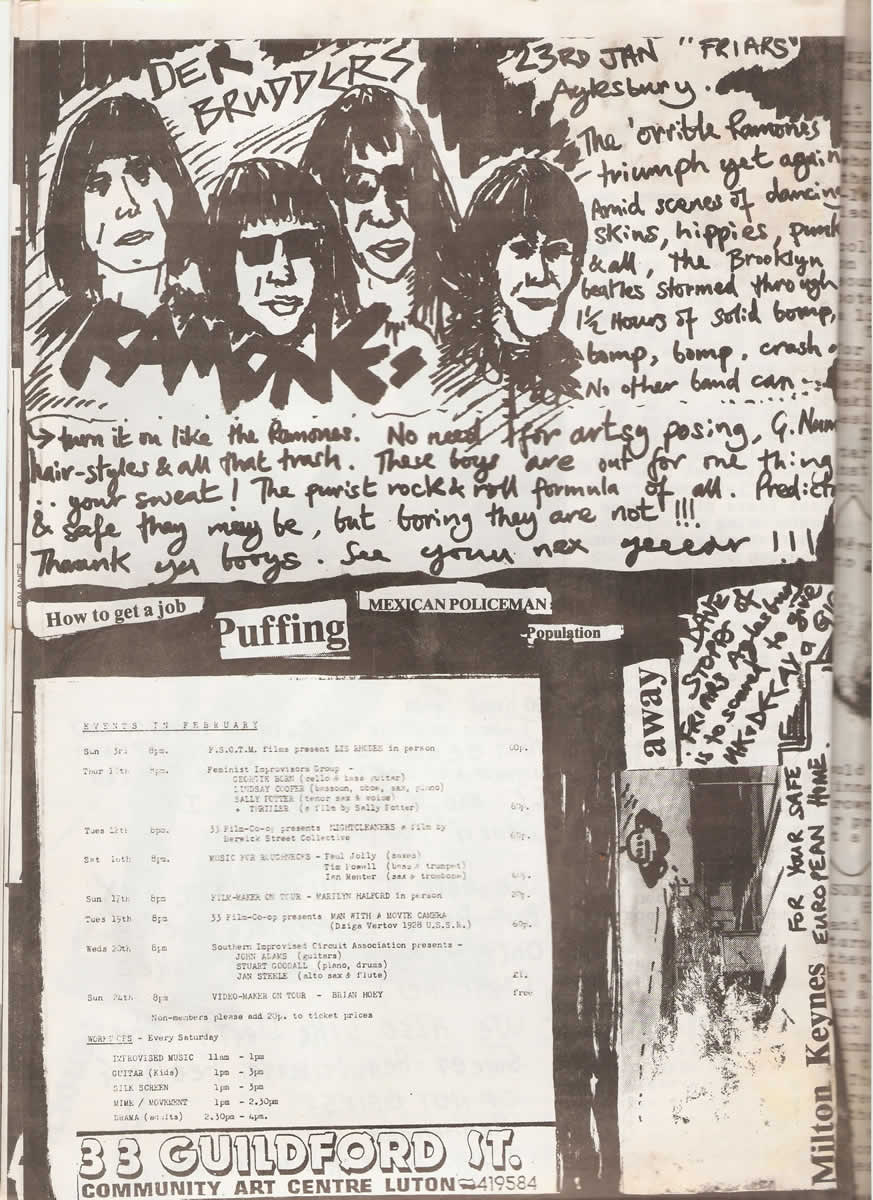 DER
BRUDDERS
RAMONES
23RD JAN "FRIARS"
Aylesbury.
The 'orrible Ramones
triumph yet again
Amid scenes of dancing
skins, hippies, punk
& all, the Brooklyn
beatles stormed through
1½ Hours of solid bomp,
bomp, bomp, crash
No other band can
turn it on like the Ramones. No need for artsy posing, G. Num
hair-styles & all that trash. These boys are out for one thing
.. your sweat! The purist rock & roll formula of all. Predict
& safe they may be, but boring they are not!!!
Thaank ya booys. See youu nex yeeear !!!
BALANCE
How to get a job
Puffing
MEXICAN POLICEMAN
Population
away
DAVE
STOPPS of
FRIARS Aylesbury
is to
to give
FOR YOUR SAFE
EUROPEAN HOME.
Milton Keynes
EVENTS IN FEBRUARY
Sun 3rd 8pm. F.S.O.T.M. films present LIS RHODES in person 60p.
Thur 8pm. Feminist Improvisors Group -
GEORGIE BORN (cello & bass guitar)
LINDSAY COOPER (bassoon, oboe, sax, piano)
SALLY POTTER (tenor sax & voice)
+ THRILLER (a film by Sally Potter) 60p.
Tues 12th 8pm. 33 Film-Co-op presents NIGHTCLEANERS a film by
Berwick Street Collective 60p.
Sat 16th 8pm. MUSIC FOR ROUGHNECKS - Paul Jolly (saxes)
Tim Powell (bass & trumpet)
Ian Menter (sax & trombone) 60p.
Sun 17th 8pm FILM-MAKER ON TOUR - MARILYN HALFORD in person 20p.
Tues 19th 8pm 33 Film-Co-op presents MAN WITH A MOVIE CAMERA
(Dziga Vertov 1928 U.S.S.R.) 60p.
Weds 20th 8pm Southern Improvised Circuit Association presents -
JOHN ADAMS (guitars)
STUART GOODALL (piano, drums)
JAN STEELE (alto sax & flute) £1.
Sun 24th 8pm VIDEO-MAKER ON TOUR - BRIAN HOEY free
Non-members please add 20p. to ticket prices
WORKSHOPS - Every Saturday
IMPROVISED MUSIC 11am - 1pm
GUITAR (Kids) 1pm - 3pm
SILK SCREEN 1pm - 3pm
MIME / MOVEMENT 1pm - 2.30pm
DRAMA (adults) 2.30pm - 4pm.
33 GUILDFORD ST.
COMMUNITY ART CENTRE LUTON 419584